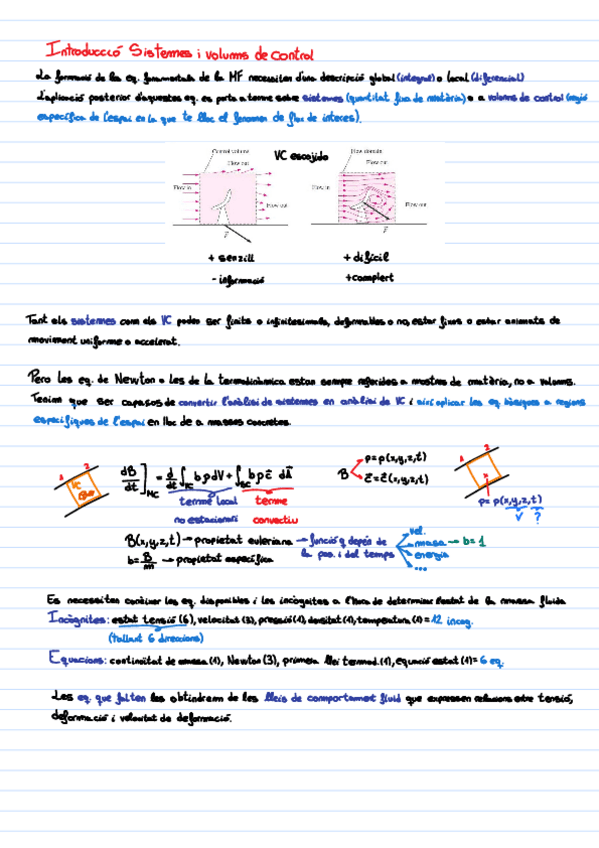 Introducció Sistemes i volums de control
La formació de les eq. fonamentals de la MF necessiten d'una descripció global (integral) o local (diferencial)
L'aplicació posterior d'aquestes eq. es porta a terme sobre sistemes (quantitat fixa de matèria) o a volums de control (regió
específica de l'espai en la que te lloc el fenomen de flux de interès).
VC escojido
Control volume
Flow out
Flow in
Flow out
F
Flow domain
Flow out
Flow in
Flow out
F
+ senzill
+ difícil
- informació
+ complert
Tant els sistemes com els VC poden ser finits o infinitesimals, deformables o no, estar fixos o estar animats de
moviment uniforme o accelerat.
Pero les eq. de Newton o les de la termodinàmica estan sempre referides a mostres de matèria, no a volums.
Tenim que ser capaços de convertir l'anàlisi de sistemes en anàlisi de VC i així aplicar les eq bàsiques a regions
específiques de l'espai en lloc de a masses concretes.
1 2 VC
dB/dt ]MC = d/dt ∫VC bρdV + ∫SC bρc⃗ dA⃗
terme local terme
no estacionari convectiu
B
p=p(x,y,z,t)
c⃗=c⃗(x,y,z,t)
1 2
p=p(x,y,z,t)
v ?
B(x,y,z,t) → propietat euleriana → funció q depén de la pos. i del temps
vel.
massa → b=1
energia
...
b=B/m → propietat específica
Es necessiten conèixer les eq. disponibles i les incògnites a l'hora de determinar l'estat de la massa fluida
Incògnites: estat tensió (6), velocitat (3), pressió (1), densitat (1), temperatura (1) = 12 incog.
(tallant 6 direccions)
Equacions: continuïtat de massa (1), Newton (3), primera llei termod. (1), equació estat (1) = 6 eq.
Les eq. que falten les obtindrem de les lleis de comportament fluid que expressen relacions entre tensió,
deformació i velocitat de deformació.